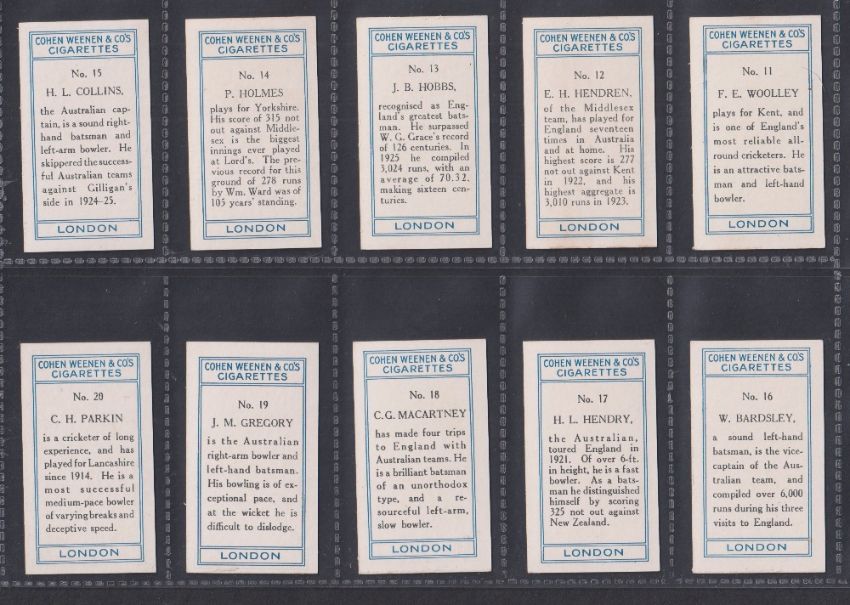 COHEN WEENEN & CO'S
CIGARETTES
No. 15
H. L. COLLINS,
the Australian cap-
tain, is a sound right-
hand batsman and
left-arm bowler. He
skippered the success-
ful Australian teams
against Gilligan's
side in 1924-25.
LONDON
COHEN WEENEN & CO'S
CIGARETTES
No. 14
P. HOLMES
plays for Yorkshire.
His score of 315 not
out against Middle-
sex is the biggest
innings ever played
at Lord's. The pre-
vious record for this
ground of 278 runs
by Wm. Ward was of
105 years' standing.
LONDON
COHEN WEENEN & CO'S
CIGARETTES
No. 13
J. B. HOBBS,
recognised as Eng-
land's greatest bats-
man. He surpassed
W. G. Grace's record
of 126 centuries. In
1925 he compiled
3,024 runs, with an
average of 70.32,
making sixteen cen-
turies.
LONDON
COHEN WEENEN & CO'S
CIGARETTES
No. 12
E. H. HENDREN,
of the Middlesex
team, has played for
England seventeen
times in Australia
and at home. His
highest score is 277
not out against Kent
in 1922, and his
highest aggregate is
3,010 runs in 1923.
LONDON
COHEN WEENEN & CO'S
CIGARETTES
No. 11
F. E. WOOLLEY
plays for Kent, and
is one of England's
most reliable all-
round cricketers. He
is an attractive bats-
man and left-hand
bowler.
LONDON
COHEN WEENEN & CO'S
CIGARETTES
No. 20
C. H. PARKIN
is a cricketer of long
experience, and has
played for Lancashire
since 1914. He is a
most successful
medium-pace bowler
of varying breaks and
deceptive speed.
LONDON
COHEN WEENEN & CO'S
CIGARETTES
No. 19
J. M. GREGORY
is the Australian
right-arm bowler and
left-hand batsman.
His bowling is of ex-
ceptional pace, and
at the wicket he is
difficult to dislodge.
LONDON
COHEN WEENEN & CO'S
CIGARETTES
No. 18
C. G. MACARTNEY
has made four trips
to England with
Australian teams. He
is a brilliant batsman
of an unorthodox
type, and a re-
sourceful left-arm,
slow bowler.
LONDON
COHEN WEENEN & CO'S
CIGARETTES
No. 17
H. L. HENDRY,
the Australian,
toured England in
1921. Of over 6-ft.
in height, he is a fast
bowler. As a bats-
man he distinguished
himself by scoring
325 not out against
New Zealand.
LONDON
COHEN WEENEN & CO'S
CIGARETTES
No. 16
W. BARDSLEY,
a sound left-hand
batsman, is the vice-
captain of the Aus-
tralian team, and
compiled over 6,000
runs during his three
visits to England.
LONDON